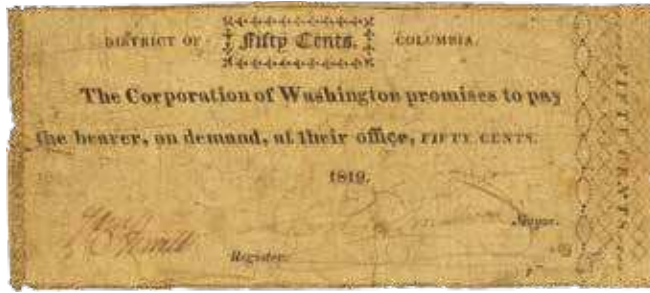 DISTRICT OF Fifty Cents. COLUMBIA.
The Corporation of Washington promises to pay
the bearer, on demand, at their office, FIFTY CENTS.
1819.
Mayor.
Register.
FIFTY CENTS